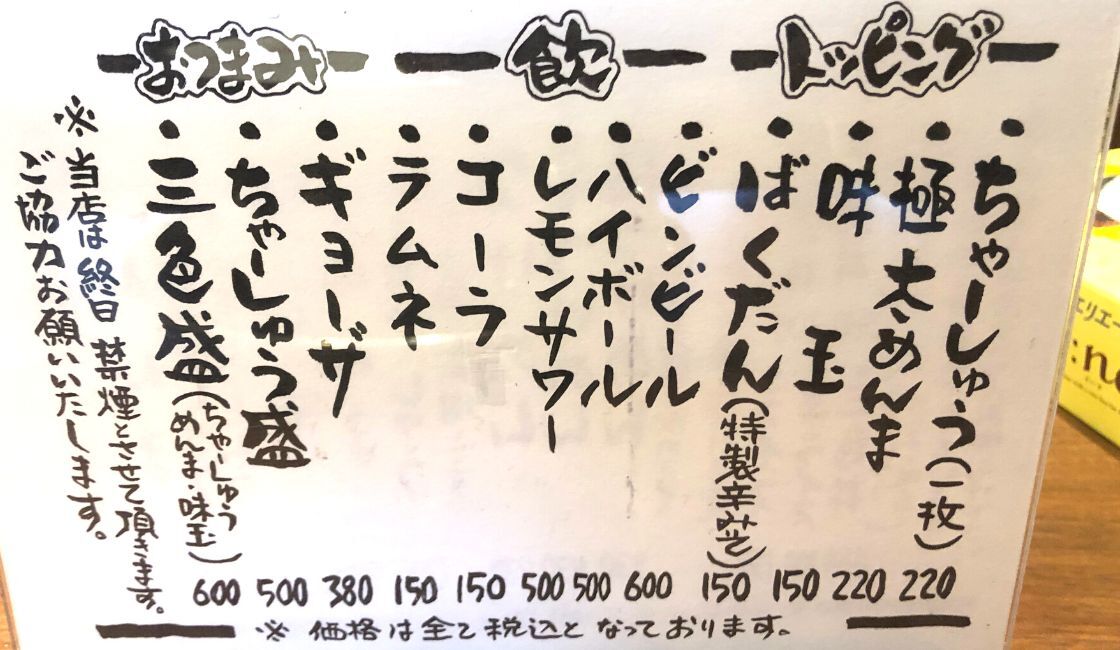 トッピング
・ちゃーしゅう(二枚) 220
・極太めんま 220
・味玉 150
・ばくだん(特製辛みそ) 150
飲
・ビンビール 600
・ハイボール 500
・レモンサワー 500
・コーラ 150
・ラムネ 150
おつまみ
・ギョーザ 380
・ちゃーしゅう盛 500
・三色盛(ちゃーしゅう
めんま・味玉) 600
※当店は終日禁煙とさせて頂きます。
ご協力お願いいたします。
※価格は全て税込となっております。
エリエー